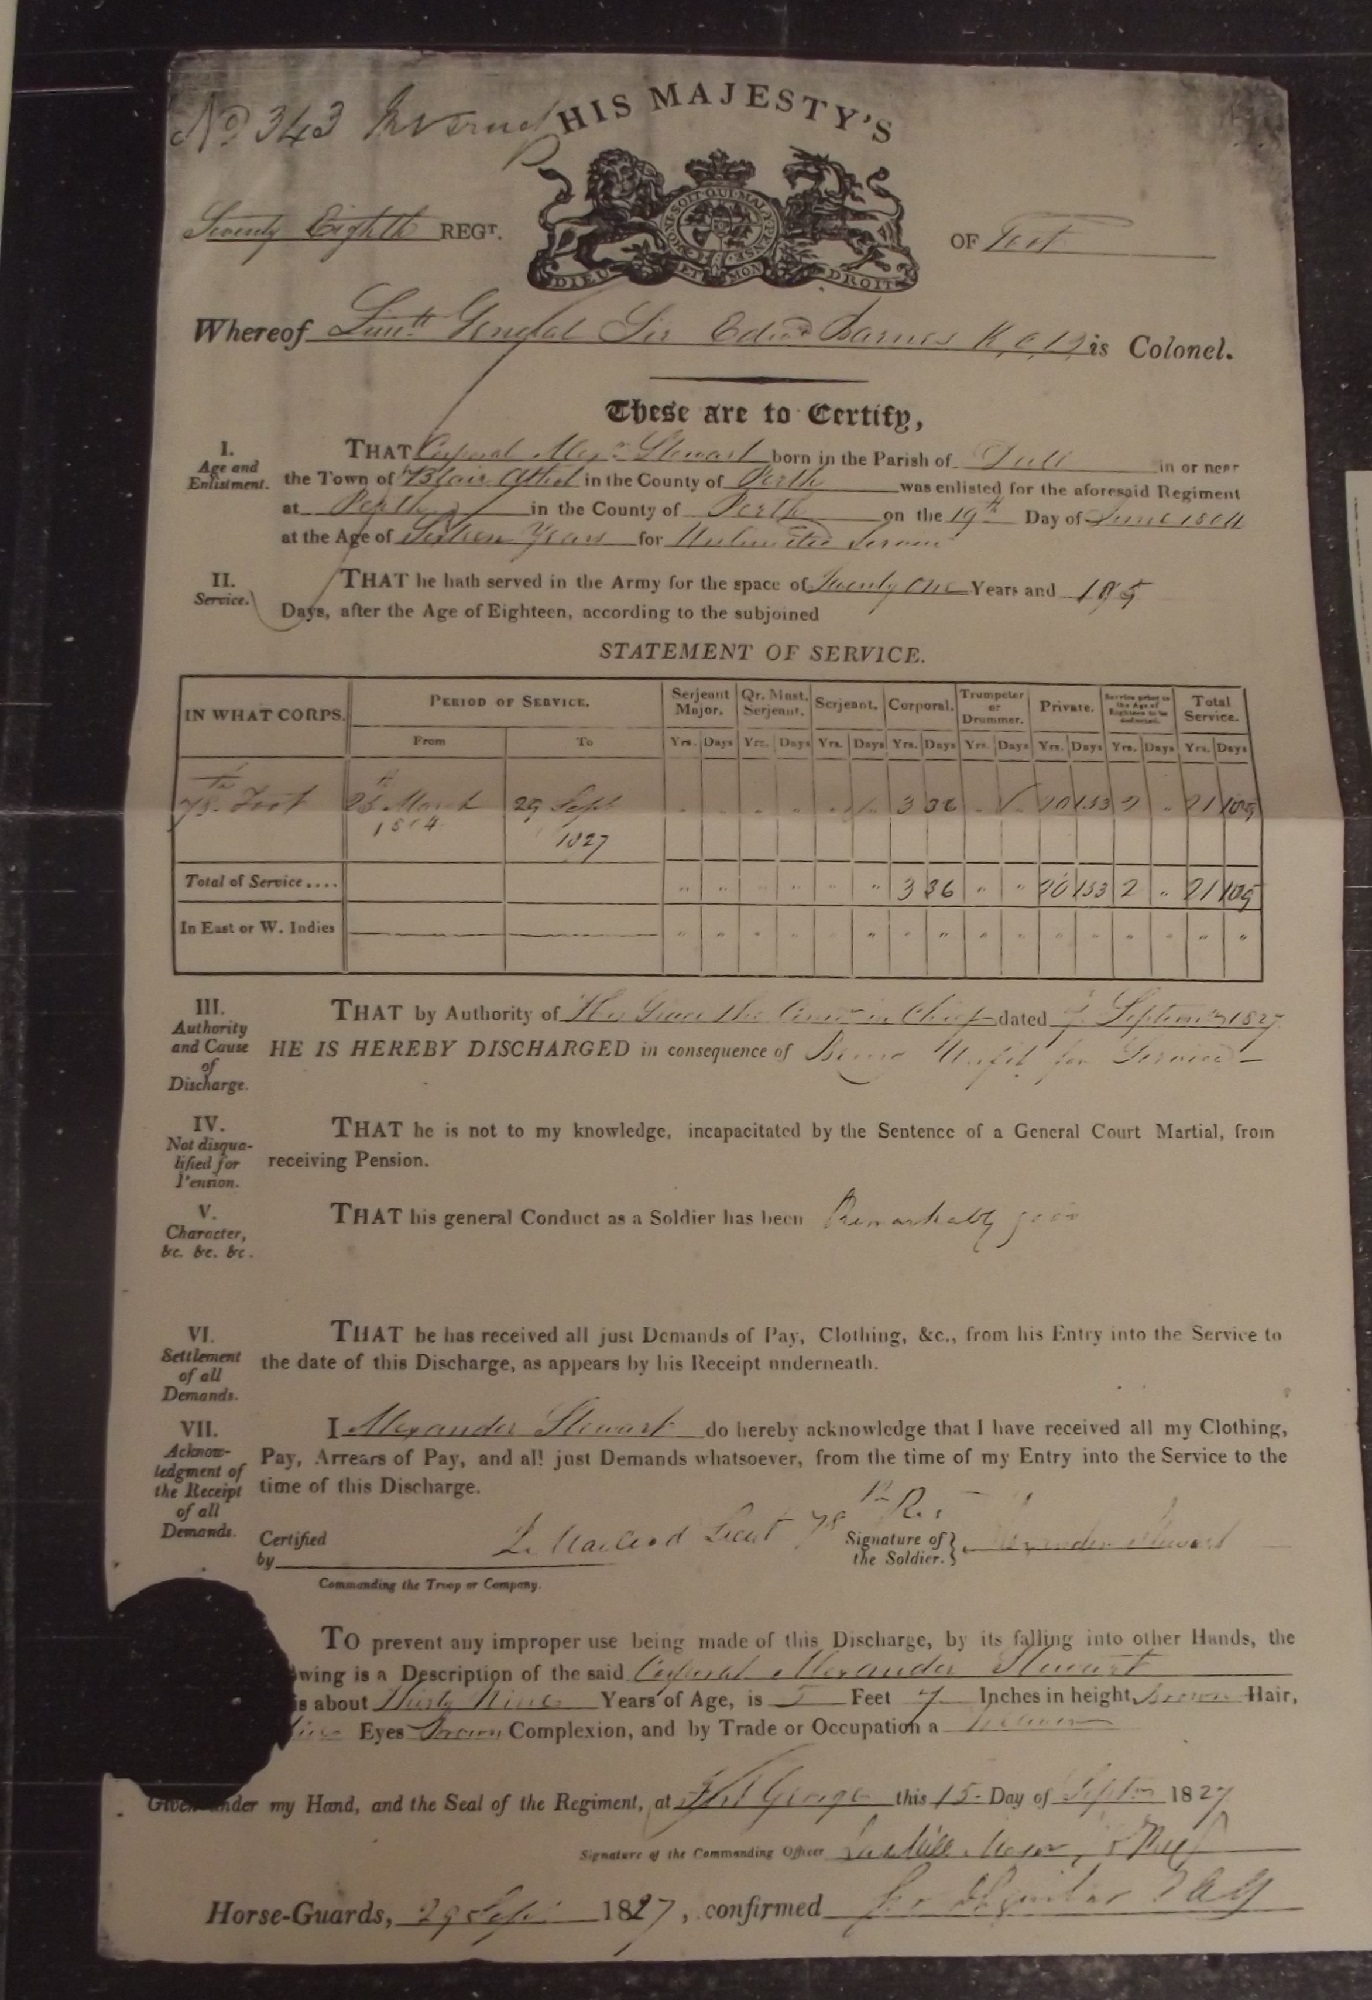 No. 343
HIS MAJESTY'S
HONI·SOIT·QUI·MAL·Y·PENSE
DIEU ET MON DROIT
Seventy Eighth REGT. OF Foot
Whereof Lieutt. General Sir Edwd. Barnes K.C.B. is Colonel.
These are to Certify,
I.
Age and
Enlistment.
THAT Corporal Alexr. Stewart born in the Parish of Dull in or near
the Town of Blair Athol in the County of Perth was enlisted for the aforesaid Regiment
at Perth in the County of Perth on the 19th Day of June 1804
at the Age of Sixteen Years for Unlimited Service
II.
Service.
THAT he hath served in the Army for the space of Twenty One Years and
Days, after the Age of Eighteen, according to the subjoined
STATEMENT OF SERVICE.
IN WHAT CORPS. PERIOD OF SERVICE. Serjeant Major. Qr. Mast. Serjeant. Serjeant. Corporal. Trumpeter or Drummer. Private. Service prior to the Age of Eighteen to be deducted. Total Service.
From To Yrs. Days Yrs. Days Yrs. Days Yrs. Days Yrs. Days Yrs. Days Yrs. Days Yrs. Days
78th Foot March 1804 29 Sept 1827 3 36 20 153 2 21
Total of Service.... 3 36 20 153 2 21
In East or W. Indies
III.
Authority
and Cause
of
Discharge.
THAT by Authority of His Grace the Comr. in Chief dated 7 September 1827
HE IS HEREBY DISCHARGED in consequence of Being Unfit for Service
IV.
Not disqua-
lified for
Pension.
THAT he is not to my knowledge, incapacitated by the Sentence of a General Court Martial, from
receiving Pension.
V.
Character,
&c. &c. &c.
THAT his general Conduct as a Soldier has been Remarkably good
VI.
Settlement
of all
Demands.
THAT he has received all just Demands of Pay, Clothing, &c., from his Entry into the Service to
the date of this Discharge, as appears by his Receipt underneath.
VII.
Acknow-
ledgment of
the Receipt
of all
Demands.
I Alexander Stewart do hereby acknowledge that I have received all my Clothing,
Pay, Arrears of Pay, and all just Demands whatsoever, from the time of my Entry into the Service to the
time of this Discharge.
Certified by Macleod Lieut 78th R. Signature of the Soldier. Alexander Stewart
Commanding the Troop or Company.
TO prevent any improper use being made of this Discharge, by its falling into other Hands, the
wing is a Description of the said Corporal Alexander Stewart
is about Thirty Nine Years of Age, is 5 Feet 7 Inches in height, brown Hair,
Eyes Brown Complexion, and by Trade or Occupation a
Given under my Hand, and the Seal of the Regiment, at Fort George this 15 Day of Septr 1827
Signature of the Commanding Officer
Horse-Guards, 29 Sept 1827, confirmed